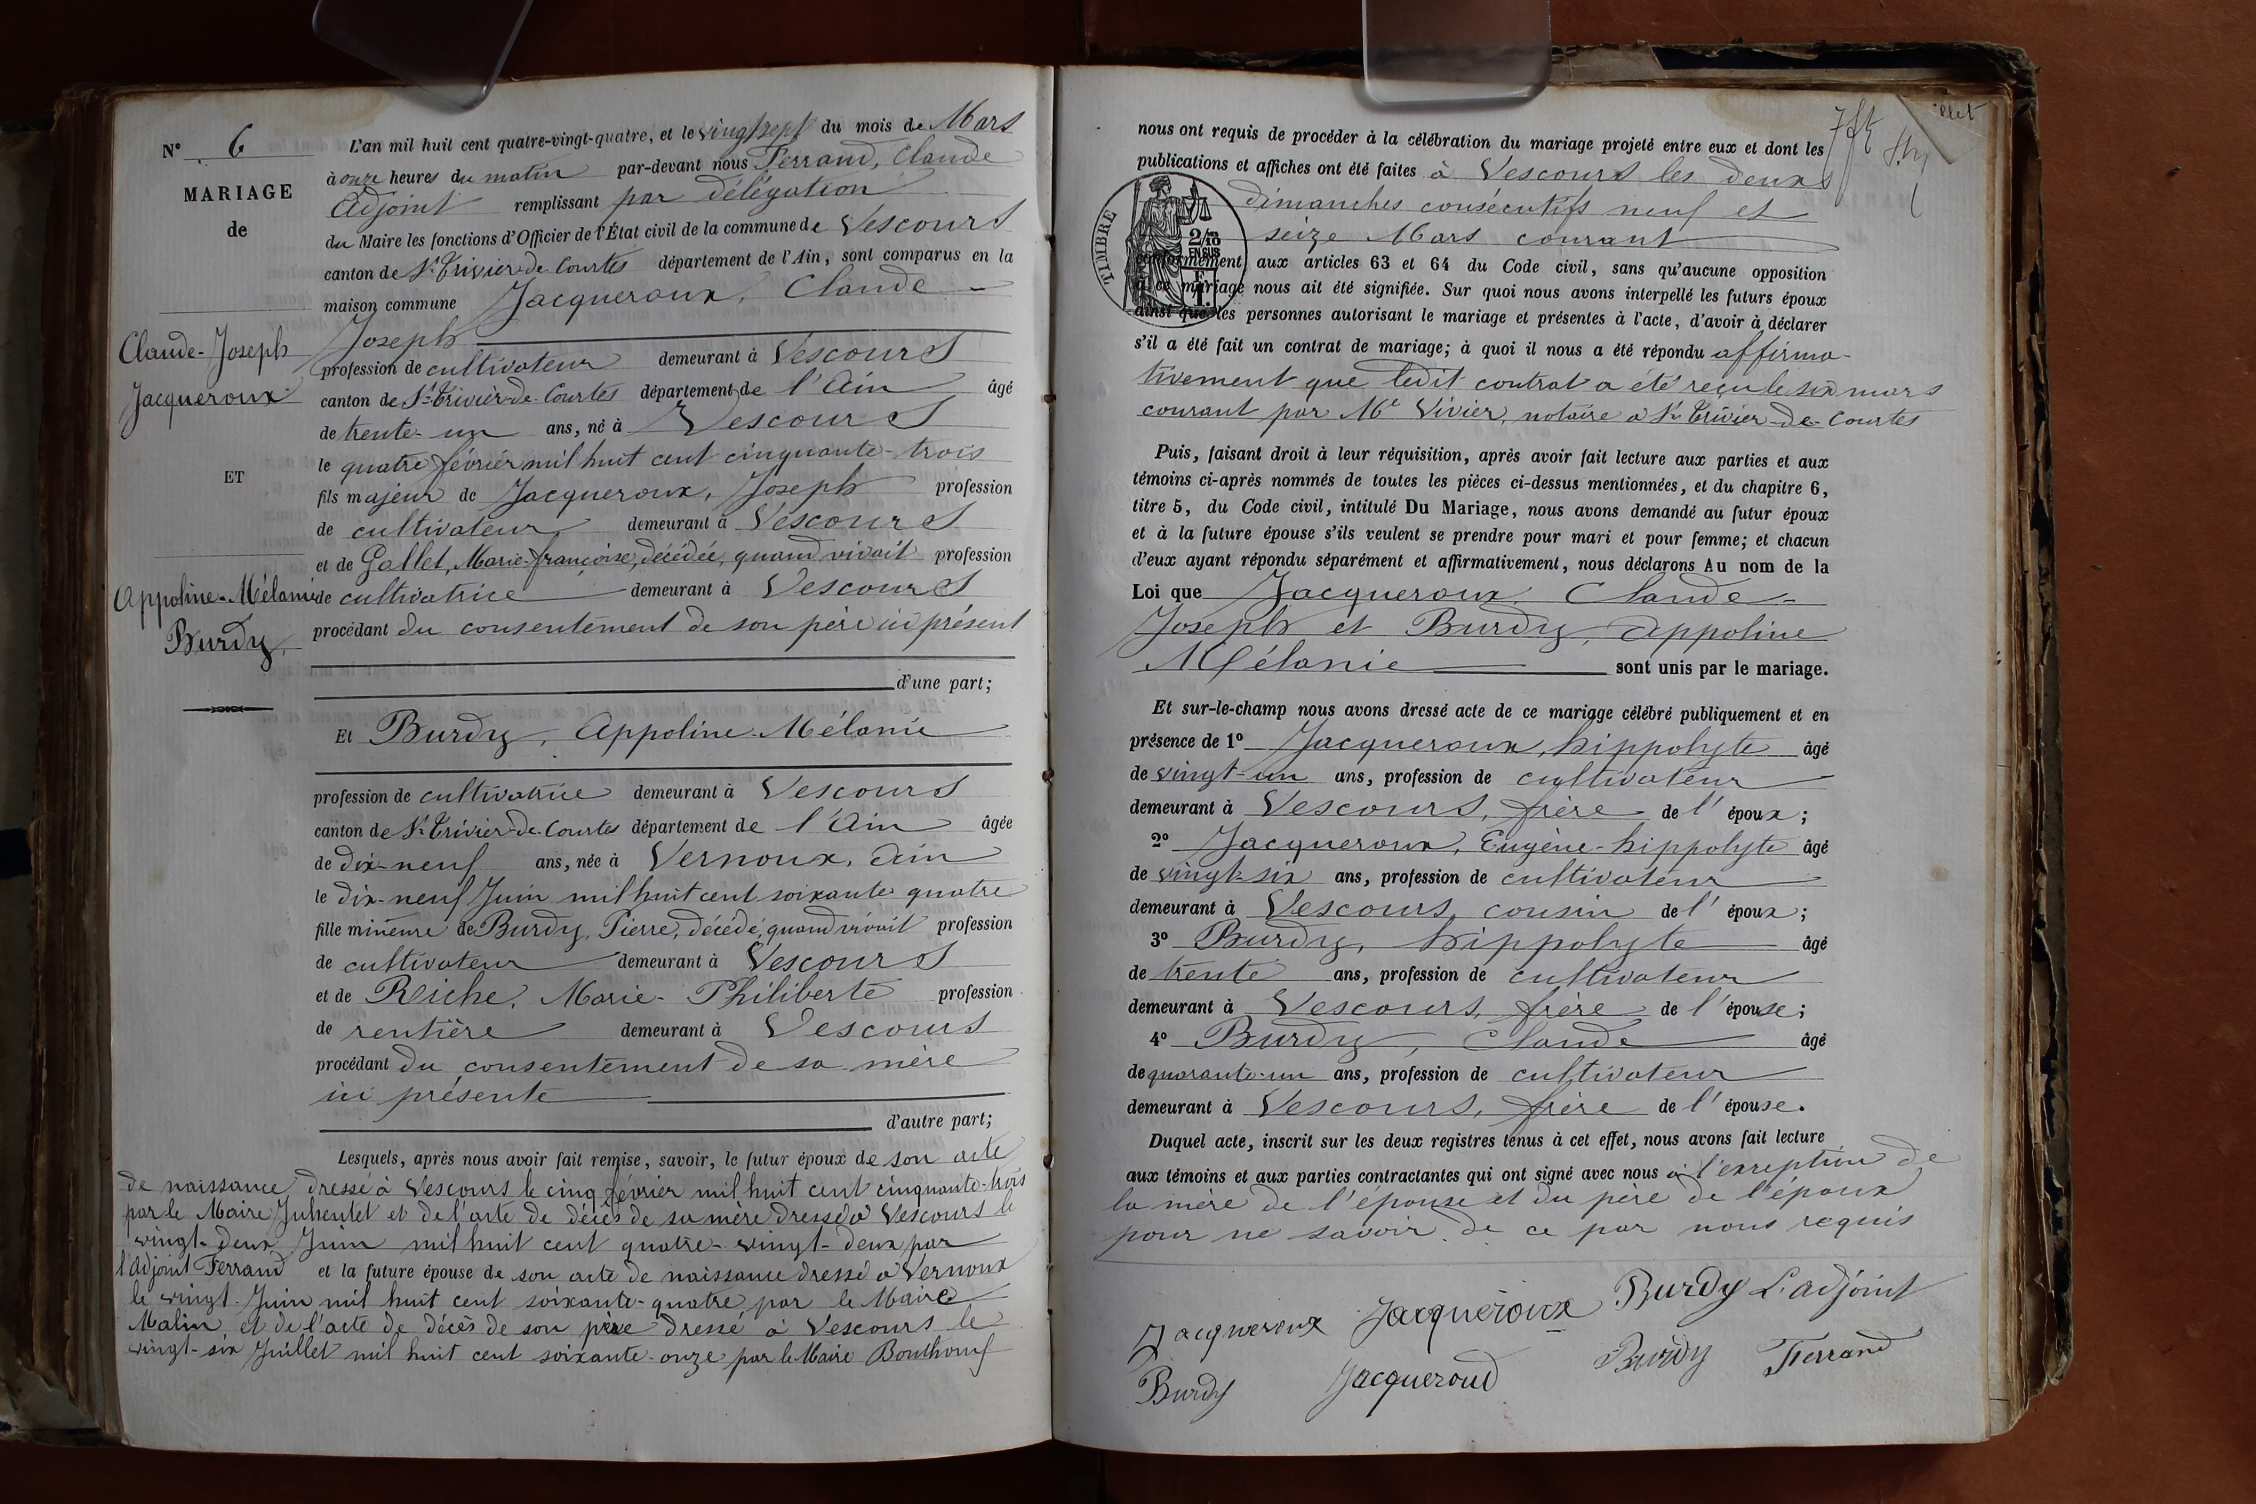 N° 6
MARIAGE
de
Claude-Joseph
Jacqueroux
ET
Appoline-Mélanie
Burdy
L'an mil huit cent quatre-vingt-quatre, et le vingt sept du mois de Mars
à onze heures du matin par-devant nous Ferrand, Claude
Adjoint remplissant par délégation
du Maire les fonctions d'Officier de l'État civil de la commune de Vescours
canton de St Trivier-de-Courtes département de l'Ain, sont comparus en la
maison commune Jacqueroux, Claude-
Joseph
profession de cultivateur demeurant à Vescours
canton de St Trivier-de-Courtes département de l'Ain âgé
de trente-un ans, né à Vescours
le quatre février mil huit cent cinquante-trois
fils majeur de Jacqueroux, Joseph profession
de cultivateur demeurant à Vescours
et de Gallet, Marie-françoise, décédée, quand vivait profession
de cultivatrice demeurant à Vescours
procédant du consentement de son père ici présent
d'une part;
Et Burdy, Appoline-Mélanie
profession de cultivatrice demeurant à Vescours
canton de St Trivier-de-Courtes département de l'Ain âgée
de dix-neuf ans, née à Vernoux, Ain
le dix-neuf Juin mil huit cent soixante-quatre
fille mineure de Burdy, Pierre, décédé, quand vivait profession
de cultivateur demeurant à Vescours
et de Reiche, Marie-Philiberte profession
de rentière demeurant à Vescours
procédant du consentement de sa mère
ici présente
d'autre part;
Lesquels, après nous avoir fait remise, savoir, le futur époux de son acte
de naissance dressé à Vescours le cinq février mil huit cent cinquante-trois
par le Maire et de l'acte de décès de sa mère dressé à Vescours le
vingt-deux Juin mil huit cent quatre-vingt-deux par
l'adjoint Ferrand et la future épouse de son acte de naissance dressé à Vernoux
le vingt Juin mil huit cent soixante-quatre par le Maire
Malin et de l'acte de décès de son père dressé à Vescours le
vingt-six Juillet mil huit cent soixante-onze par le Maire Bouthouf
nous ont requis de procéder à la célébration du mariage projeté entre eux et dont les
publications et affiches ont été faites à Vescours les deux
dimanches consécutifs neuf et
seize Mars courant
TIMBRE
2/10
EN SUS
conformément aux articles 63 et 64 du Code civil, sans qu'aucune opposition
à ce mariage nous ait été signifiée. Sur quoi nous avons interpellé les futurs époux
ainsi que les personnes autorisant le mariage et présentes à l'acte, d'avoir à déclarer
s'il a été fait un contrat de mariage; à quoi il nous a été répondu affirma-
tivement que ledit contrat a été reçu le six mars
courant par Me Vivier, notaire à St Trivier-de-Courtes
Puis, faisant droit à leur réquisition, après avoir fait lecture aux parties et aux
témoins ci-après nommés de toutes les pièces ci-dessus mentionnées, et du chapitre 6,
titre 5, du Code civil, intitulé Du Mariage, nous avons demandé au futur époux
et à la future épouse s'ils veulent se prendre pour mari et pour femme; et chacun
d'eux ayant répondu séparément et affirmativement, nous déclarons Au nom de la
Loi que Jacqueroux, Claude-
Joseph et Burdy, Appoline
Mélanie sont unis par le mariage.
Et sur-le-champ nous avons dressé acte de ce mariage célébré publiquement et en
présence de 1° Jacqueroux, hippolyte âgé
de vingt-un ans, profession de cultivateur
demeurant à Vescours, frère de l'époux;
2° Jacqueroux, Eugène-hippolyte âgé
de vingt-six ans, profession de cultivateur
demeurant à Vescours, cousin de l'époux;
3° Burdy, hippolyte âgé
de trente ans, profession de cultivateur
demeurant à Vescours, frère de l'épouse;
4° Burdy, Claude âgé
de quarante-un ans, profession de cultivateur
demeurant à Vescours, frère de l'épouse.
Duquel acte, inscrit sur les deux registres tenus à cet effet, nous avons fait lecture
aux témoins et aux parties contractantes qui ont signé avec nous à l'exception de
la mère de l'épouse et du père de l'époux
pour ne savoir de ce par nous requis
Jacqueroux Jacqueroux Burdy L'adjoint
Burdy Jacqueroud Burdy Ferrand